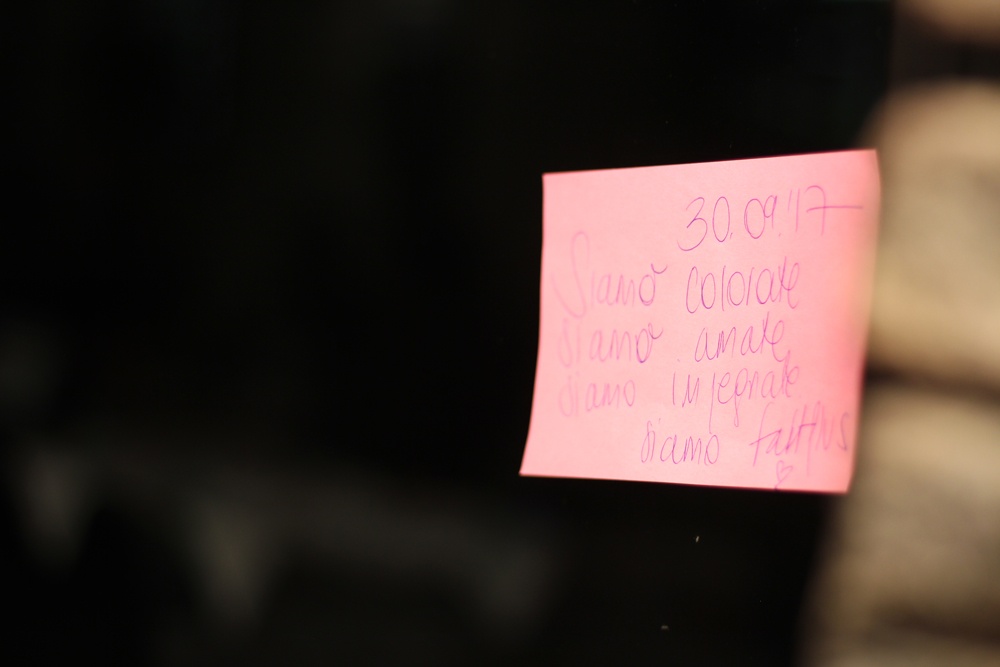 30.09.'17
Siamo colorate
Siamo amate
siamo impegnate
siamo